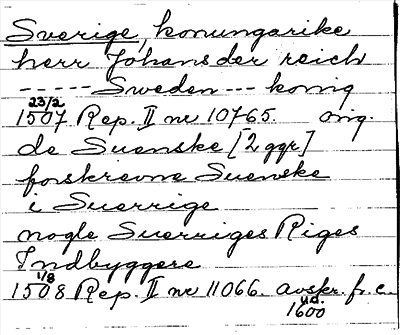 Sverige, konungarike
herr Johans der reich
----- Sweden --- konig
23/2
1507 Rep. II nr 10765. orig.
de Suenske [2 ggr]
forskrevne Suenske
i Suerrige
nogle Suerriges Riges
Indbyggere
1/8
1508 Rep. II nr 11066. avskr. fr. c.
1600 ud.